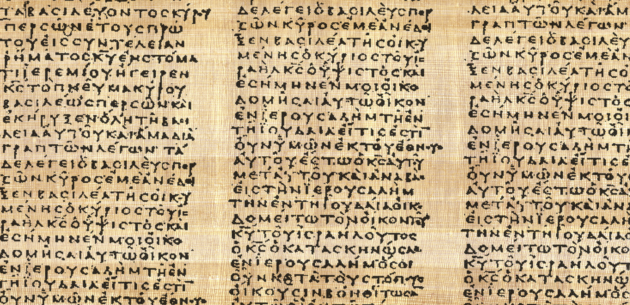 ΤΑΒΑCΙΛΕΥΟΝΤΟCΚΥΡΥ
ΠΕΡCΩΝΕΤΟΥCΠΡΩ
ΤΟΥΕΙCCΥΝΤΕΛΕΙΑΝ
ΡΗΜΑΤΟCΚΥΕΝCΤΟΜΑ
ΤΙΙΕΡΕΜΙΟΥΗΓΕΙΡΕΝ
ΚCΤΟΠΝΕΥΜΑΚΥΡΟΥ
ΒΑCΙΛΕΩCΠΕΡCΩΝΚΑΙ
ΕΚΗΡΥΞΕΝΟΛΗΤΗΒΑCΙ
ΛΕΙΑΑΥΤΟΥΚΑΙΑΜΑΔΙΑ
ΓΡΑΠΤΩΝΛΕΓΩΝ ΤΑ
ΔΕΛΕΓΕΙΟΒΑCΙΛΕΥCΠΕΡ
CΩΝΚΥΡΟCΕΜΕΑΝΕΔΕΙ
ΞΕΝΒΑCΙΛΕΑΤΗCΟΙΚΥ
ΜΕΝΗCΟΚΥΡΙΟCΤΟΥΙC
ΡΑΗΛΚCΟΥΨΙCΤΟCΚΑΙ
ΕCΗΜΗΝΕΝΜΟΙΟΙΚΟ
ΔΟΜΗCΑΙΑΥΤΩΟΙΚΟΝ
ΕΝΙΕΡΟΥCΑΛΗΜΤΗΕΝ
ΤΗΙΟΥΔΑΙΑΕΙΤΙCΕCΤΙ
ΟΥΝΥΜΩΝΕΚΤΟΥΕΘΝΟΥC
ΔΕΛΕΓΕΙΟΒΑCΙΛΕΥCΠΕΡ
CΩΝΚΥΡΟCΕΜΕΑΝΕΔΕΙ
ΞΕΝΒΑCΙΛΕΑΤΗCΟΙΚΥ
ΜΕΝΗCΟΚΥΡΙΟCΤΟΥΙC
ΡΑΗΛΚCΟΥΨΙCΤΟCΚΑΙ
ΕCΗΜΗΝΕΝΜΟΙΟΙΚΟ
ΔΟΜΗCΑΙΑΥΤΩΟΙΚΟΝ
ΕΝΙΕΡΟΥCΑΛΗΜΤΗΕΝ
ΤΗΙΟΥΔΑΙΑΕΙΤΙCΕCΤΙ
ΟΥΝΥΜΩΝΕΚΤΟΥΕΘΝΟΥC
ΑΥΤΟΥΕCΤΩΟΚCΑΥΤΟΥ
ΜΕΤΑΥΤΟΥΚΑΙΑΝΑΒΑC
ΕΙCΤΗΝΙΕΡΟΥCΑΛΗΜ
ΤΗΝΕΝΤΗΙΟΥΔΑΙΑΟΙΚ
ΔΟΜΕΙΤΩΤΟΝΟΙΚΟΝΤΟΥ
ΚΥΤΟΥΙCΡΑΗΛΟΥΤΟC
ΟΚCΟΚΑΤΑCΚΗΝΩCΑC
ΕΝΙΕΡΟΥCΑΛΗΜΟCΟΙ
ΟΥΝΚΑΤΑΤΟΥCΤΟΠΟΥC
ΟΙΚΟΥCΙΝΒΟΗΘΕΙΤΩCΑ
ΛΕΙΑΑΥΤΟΥΚΑΙΑΜ
ΓΡΑΠΤΩΝΛΕΓΩΝ
ΔΕΛΕΓΕΙΟΒΑCΙΛΕΥ
CΩΝΚΥΡΟCΕΜΕΑΝ
ΞΕΝΒΑCΙΛΕΑΤΗCΟ
ΜΕΝΗCΟΚΥΡΙΟCΤΟ
ΡΑΗΛΚCΟΥΨΙCΤΟC
ΕCΗΜΗΝΕΝΜΟΙΟ
ΔΟΜΗCΑΙΑΥΤΩΟΙΚ
ΕΝΙΕΡΟΥCΑΛΗΜΤ
ΤΗΙΟΥΔΑΙΑΕΙΤΙCΕ
ΟΥΝΥΜΩΝΕΚΤΟΥ
ΑΥΤΟΥΕCΤΩΟΚC
ΜΕΤΑΥΤΟΥΚΑΙΑΝ
ΕΙCΤΗΝΙΕΡΟΥCΑΛ
ΤΗΝΕΝΤΗΙΟΥΔΑΙΑ
ΔΟΜΕΙΤΩΤΟΝΟΙΚΟ
ΚΥΤΟΥΙCΡΑΗΛΟΥ
ΟΚCΟΚΑΤΑCΚΗΝΩ
ΕΝΙΕΡΟΥCΑΛΗΜΟ